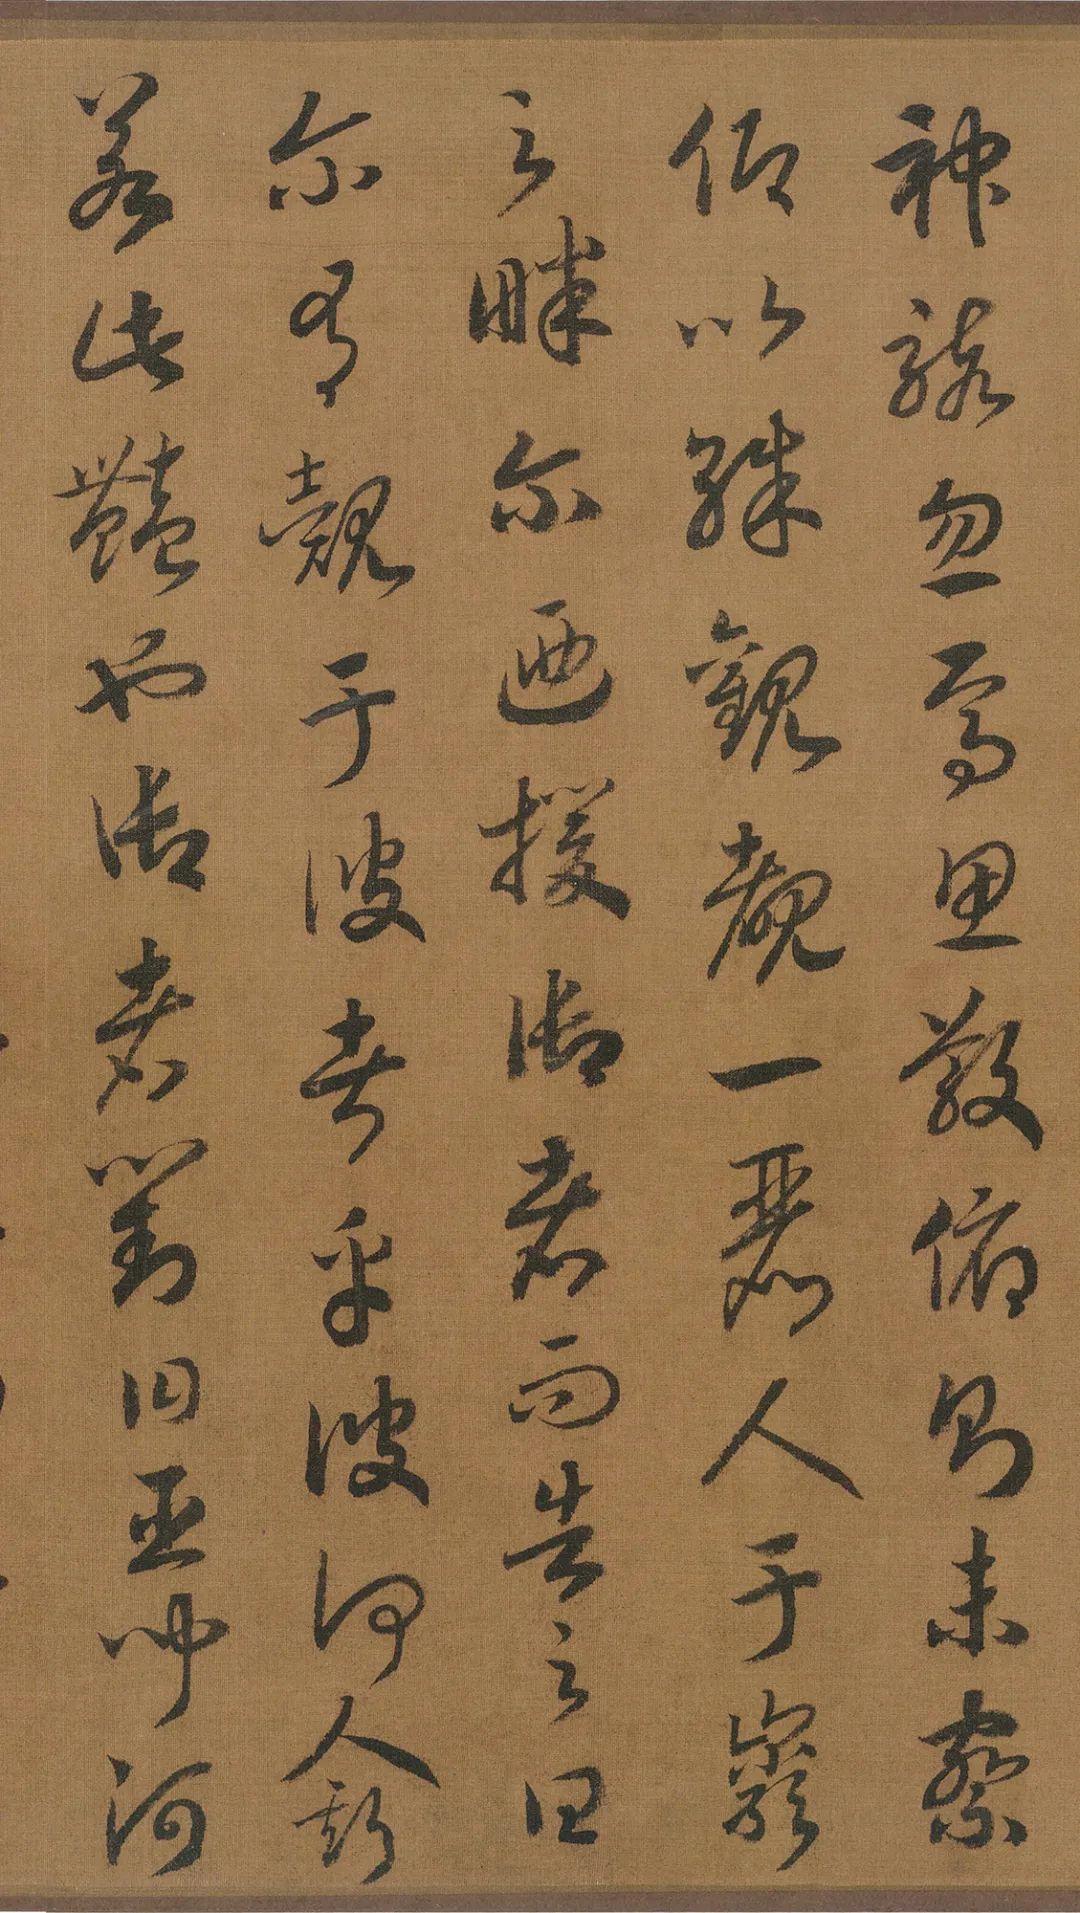 神駭忽焉思散俯則未察
仰以殊觀覩一麗人于巖
之畔尔迺援御者而告之曰
尔有覿于彼者乎彼何人斯
若此豔也御者對曰臣聞河